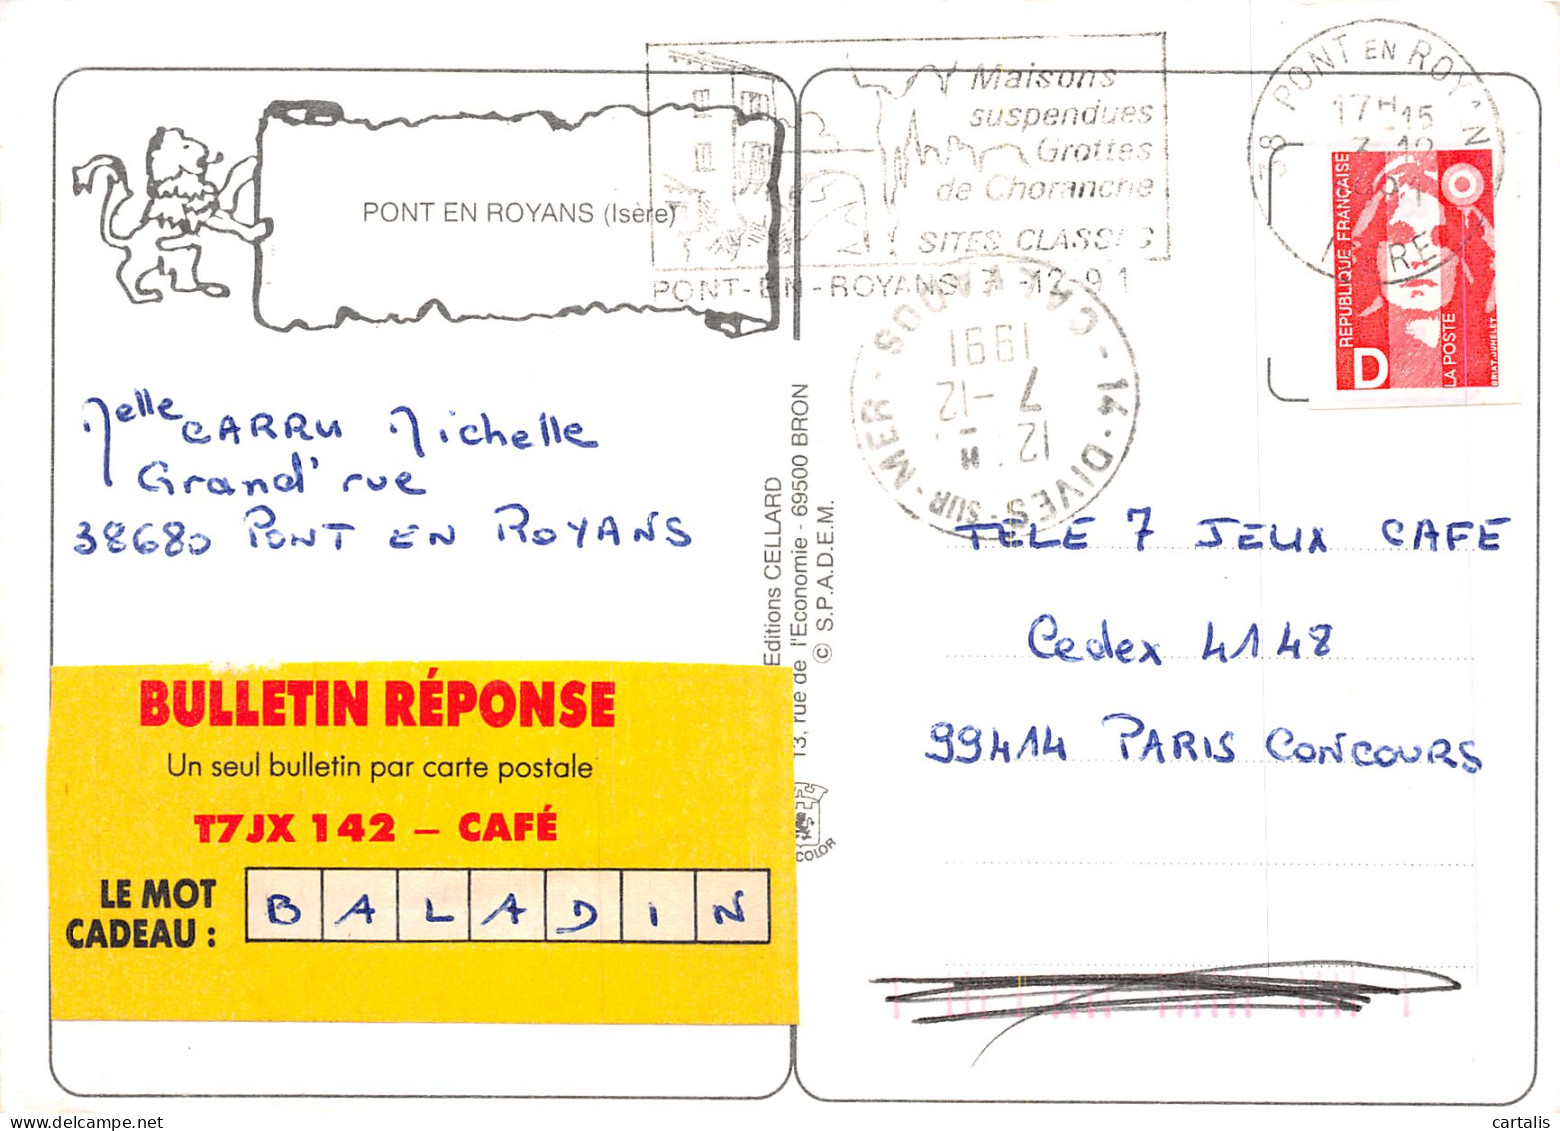 PONT EN ROYANS (Isère)
Maisons
suspendues
Grottes
de Choranche
SITES CLASSES
PONT-EN-ROYANS 7-12-91
38 PONT EN ROYANS
17H15
ISERE
RÉPUBLIQUE FRANÇAISE
D
LA POSTE
BRIAT-JUMELET
14 - DIVES-SUR-MER
CALVADOS
12 H
7 -12
1991
Melle CARRU Michelle
Grand' rue
38680 PONT EN ROYANS
Editions CELLARD
13, rue de l'Economie - 69500 BRON
© S.P.A.D.E.M.
COLOR
TELE 7 JEUX CAFE
Cedex 4148
99414 PARIS CONCOURS
BULLETIN RÉPONSE
Un seul bulletin par carte postale
T7JX 142 – CAFÉ
LE MOT
CADEAU :
B A L A D I N
cartalis